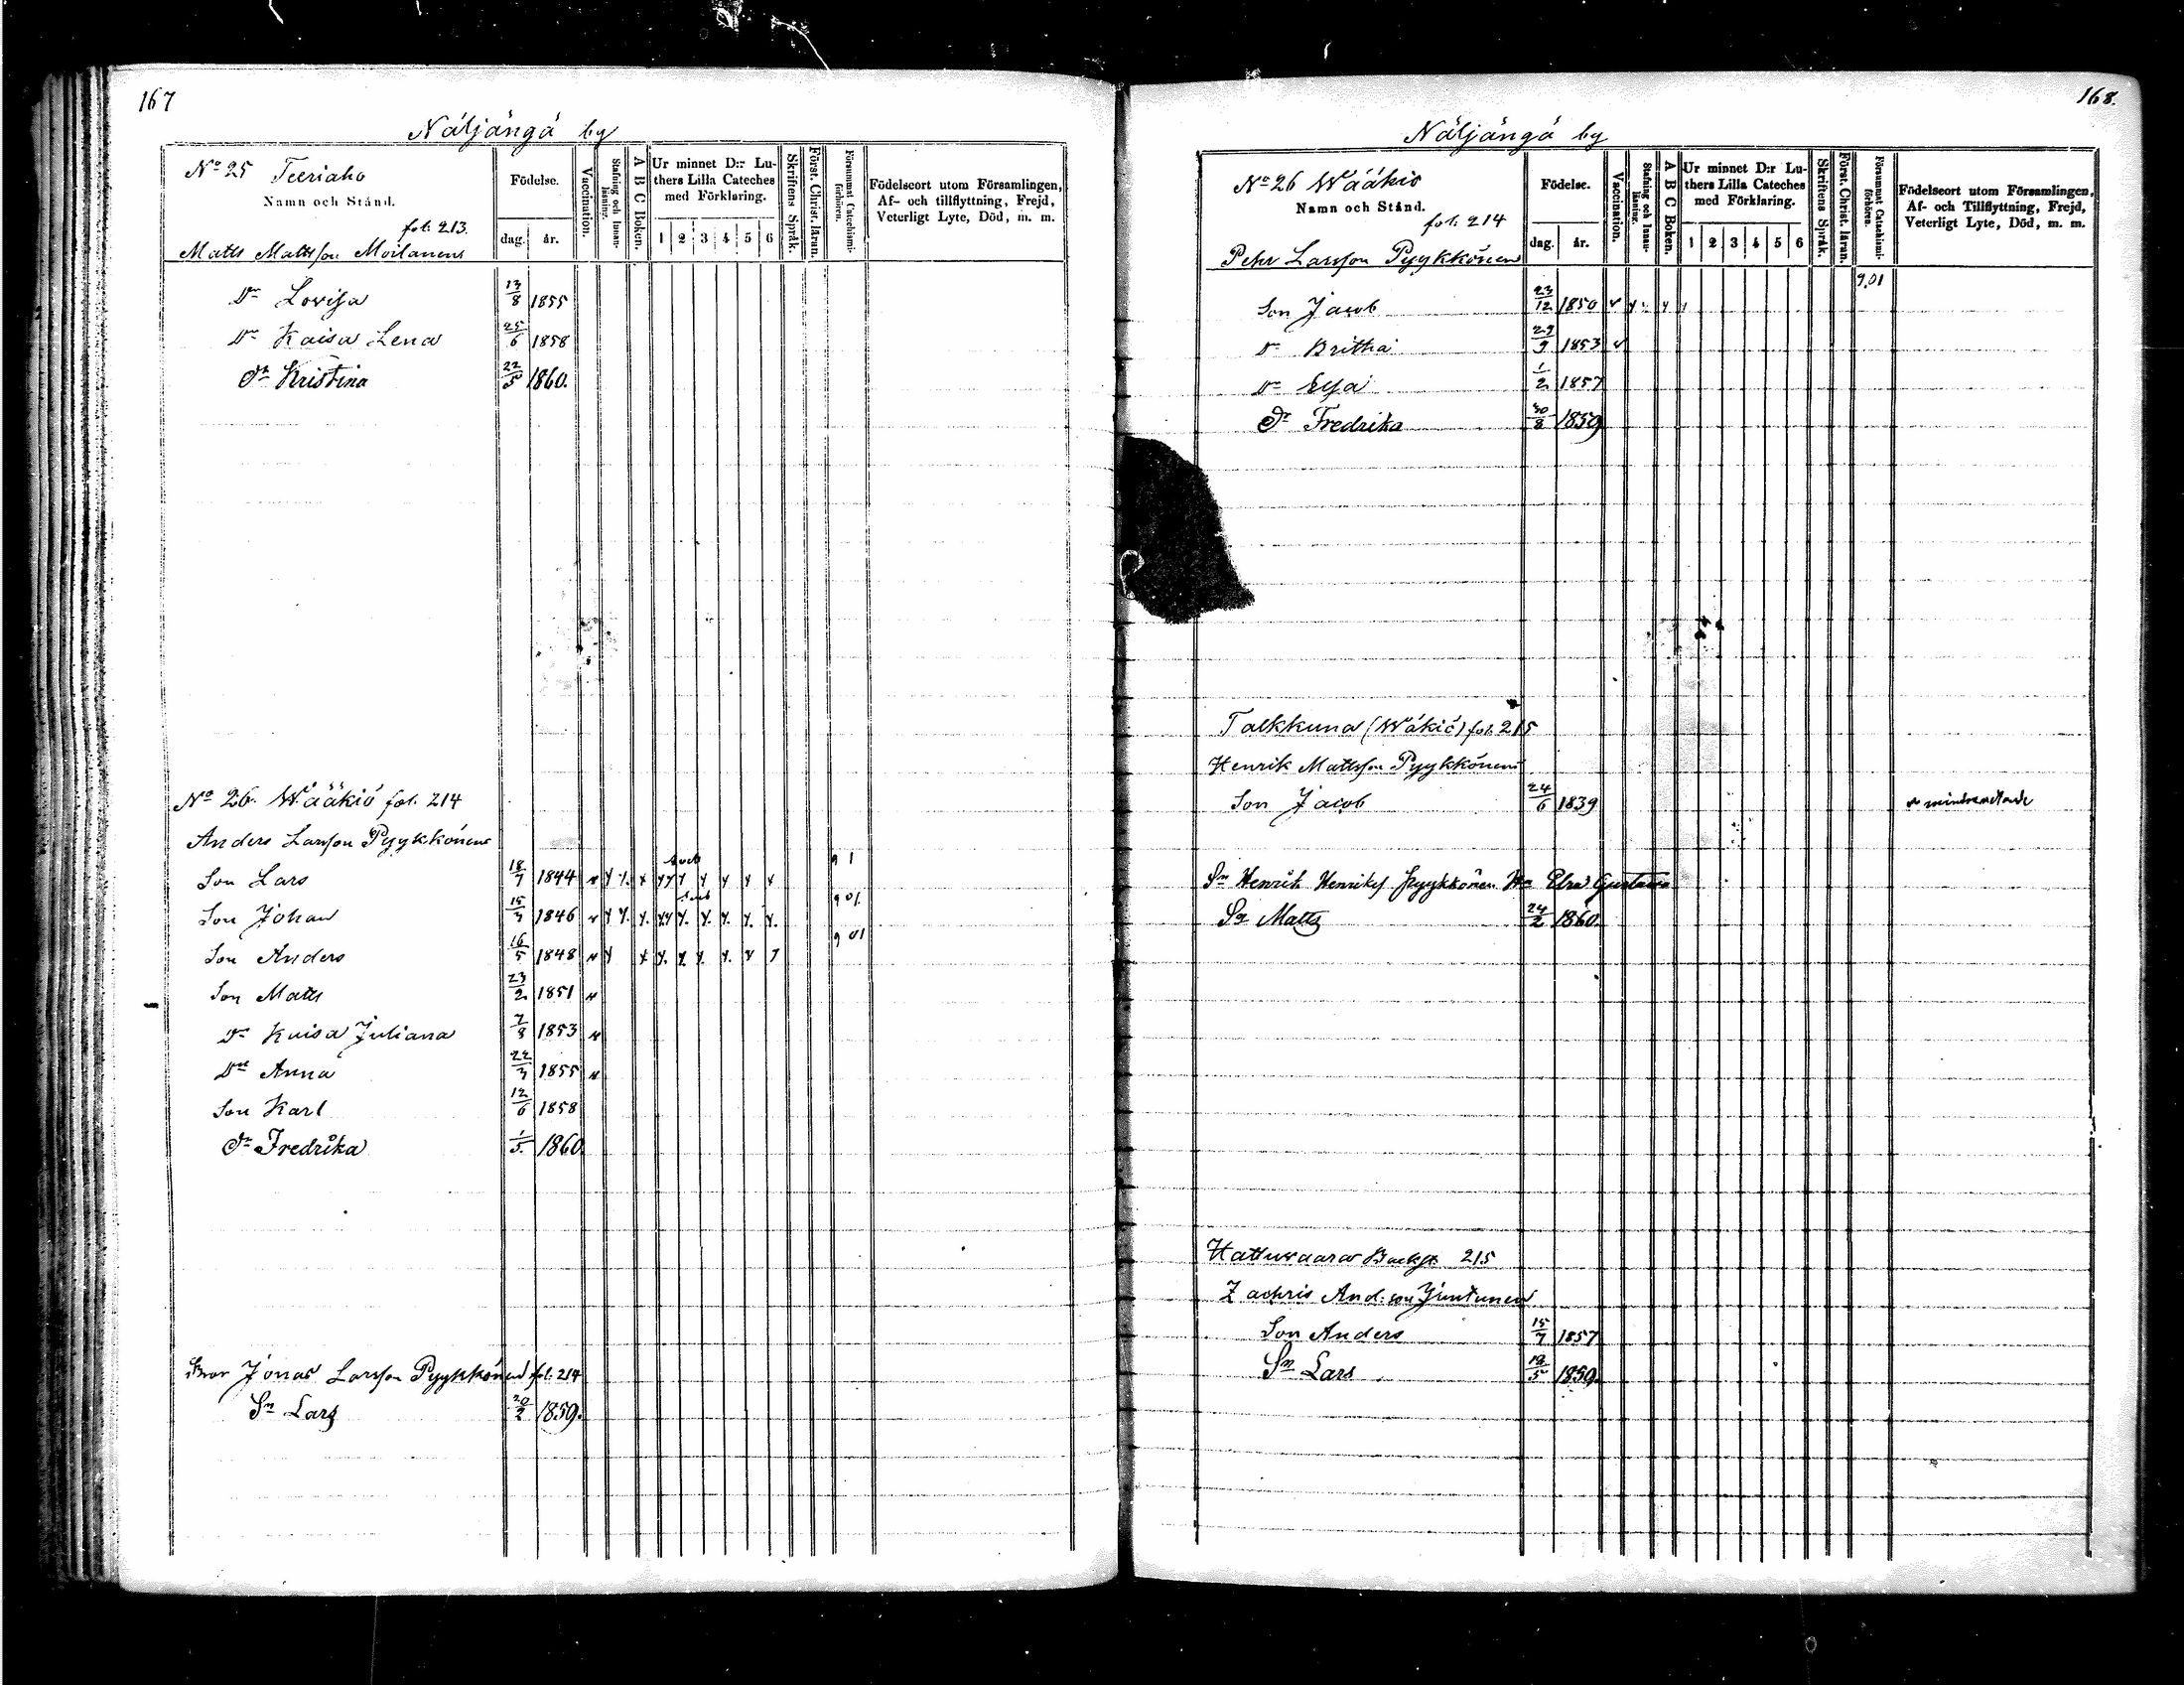 167
Näljängä by
No 25 Teeriaho
Namn och Stånd.
fol. 213.
Födelse.
dag. år.
Vaccination.
Stafning och Innanläsning.
A B C Boken.
Ur minnet D:r Luthers Lilla Cateches med Förklaring.
1 2 3 4 5 6
Skriftens Språk.
Först. Christ. läran.
Försummat Catechismiförhören.
Födelseort utom Församlingen,
Af- och tillflyttning, Frejd,
Veterligt Lyte, Död, m. m.
Matts Mattsson Moilanens
Dr Lovisa 13/8 1855
Dr Kaisa Lena 25/6 1858
Dr Kristina 22/5 1860.
No 26. Wääkiö fol. 214
Anders Larsson Pyykkönens
Son Lars 18/7 1844
Son Johan 15/3 1846
Son Anders 16/5 1848
Son Matts 23/2 1851
Dr Kaisa Juliana 7/8 1853
Dr Anna 22/3 1855
Son Karl 12/6 1858
Dr Fredrika 1/5 1860
Bror Jonas Larsson Pyykkönen fol. 214
Sn Lars 20/2 1859.
168.
Näljängä by
No 26 Wääkiö
Namn och Stånd.
fol. 214
Födelse.
dag. år.
Vaccination.
Stafning och Innanläsning.
A B C Boken.
Ur minnet D:r Luthers Lilla Cateches med Förklaring.
1 2 3 4 5 6
Skriftens Språk.
Först. Christ. läran.
Försummat Catechismiförhören.
Födelseort utom Församlingen,
Af- och Tillflyttning, Frejd,
Veterligt Lyte, Död, m. m.
Pehr Larsson Pyykkönen
9.01
Son Jacob 23/12 1850
Dr Britha 29/9 1853
Dr Elsa 1/2 1857
Dr Fredrika 30/8 1859
Talkkuna (Wäkiö) fol. 215
Henrik Mattsson Pyykkönens
Son Jacob 24/6 1839
Sn Henrik Henriks. Pyykkönen Hu Elsa Gustava
Sn Matts 24/2 1860.
Hattuvaara Backst. 215
Zachris And:son Juntunen
Son Anders 15/7 1857
Sn Lars 19/5 1859.